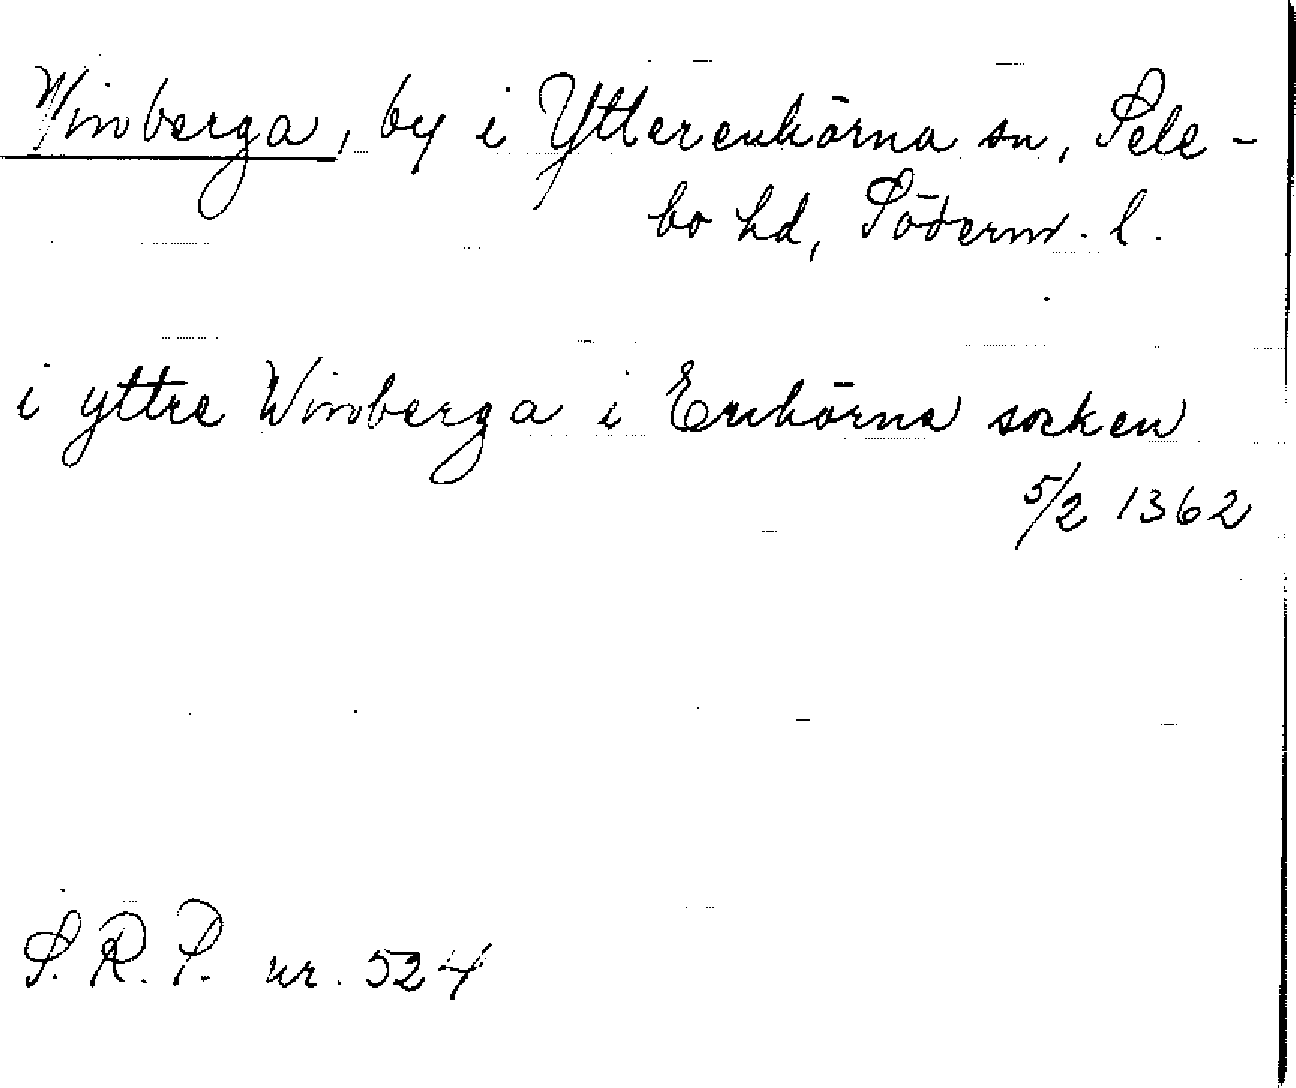 Vinberga, by i Ytterenhörna sn, Sele-
bo hd, Söderm. l.
i yttre Winberga i Enhörna socken
5/2 1362
S. R. P. nr. 524